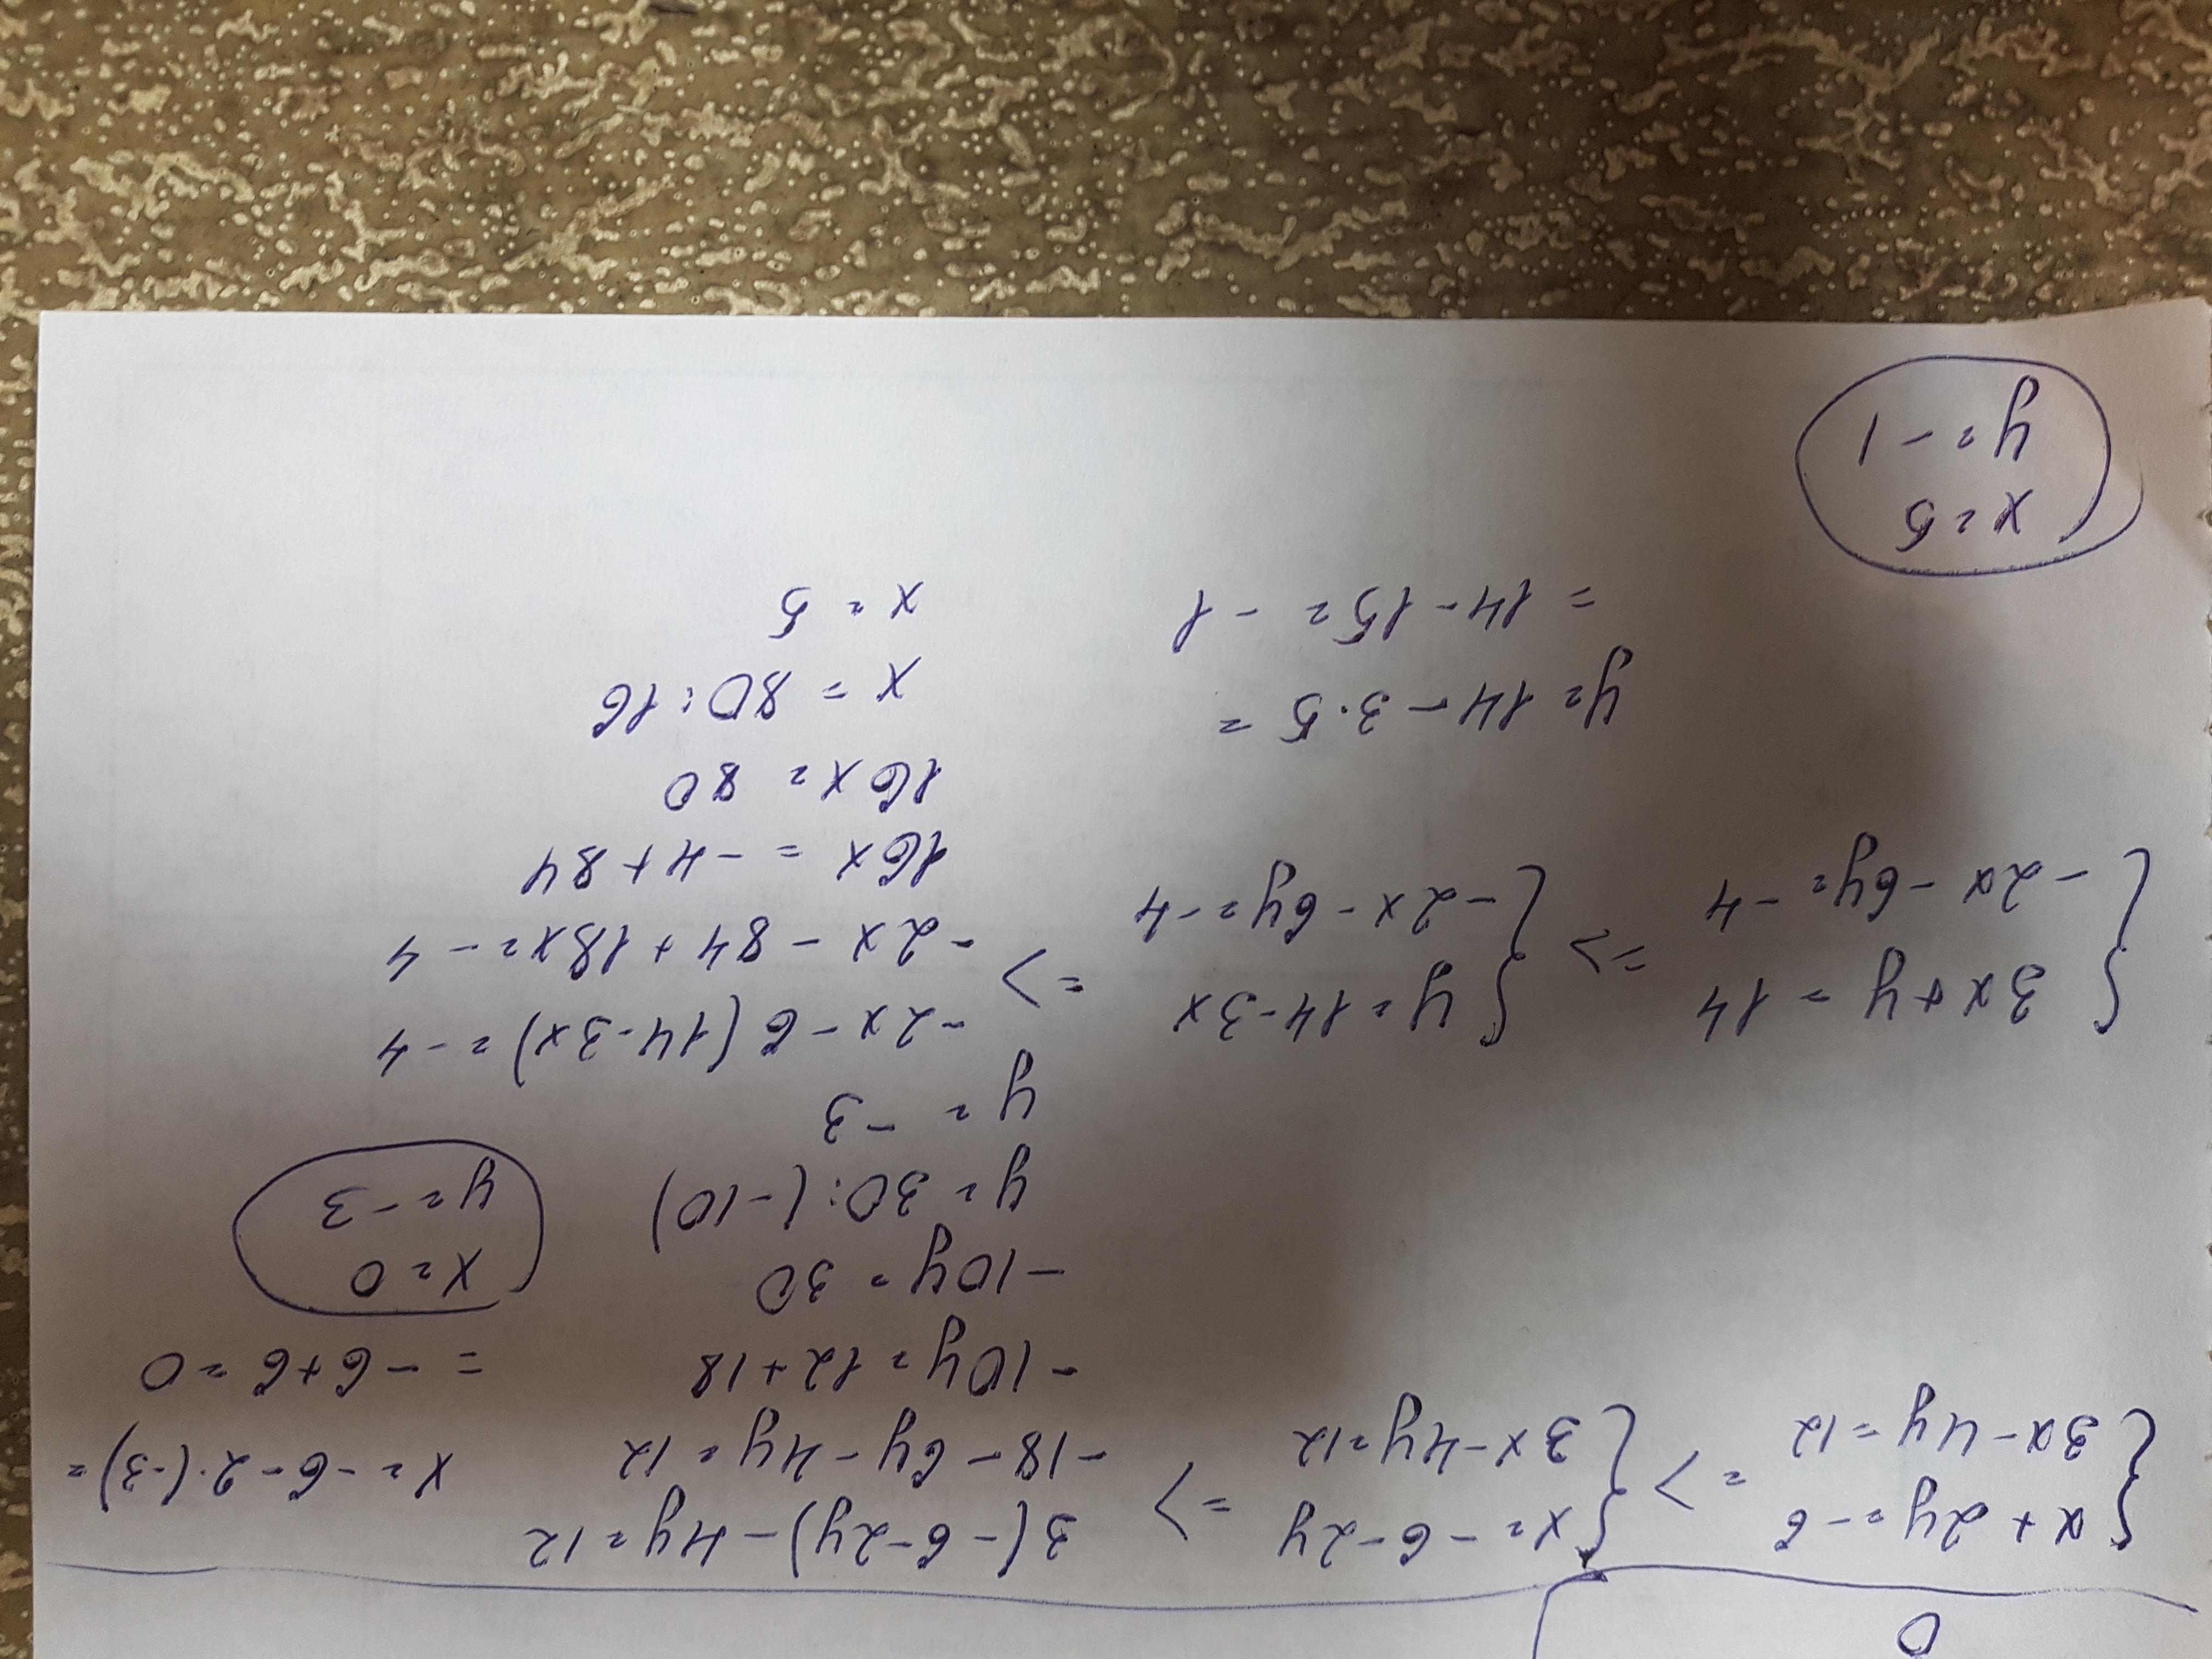 0
{ x + 2y = -6
3x - 4y = 12 =>
{ x = -6 - 2y
3x - 4y = 12 =>
3(-6 - 2y) - 4y = 12
-18 - 6y - 4y = 12
-10y = 12 + 18
-10y = 30
y = 30 : (-10)
y = -3
x = -6 - 2 · (-3) =
= -6 + 6 = 0
x = 0
y = -3
{ 3x + y = 14
-2x - 6y = -4 =>
{ y = 14 - 3x
-2x - 6y = -4 =>
-2x - 6(14 - 3x) = -4
-2x - 84 + 18x = -4
16x = -4 + 84
16x = 80
x = 80 : 16
x = 5
y = 14 - 3 · 5 =
= 14 - 15 = -1
x = 5
y = -1